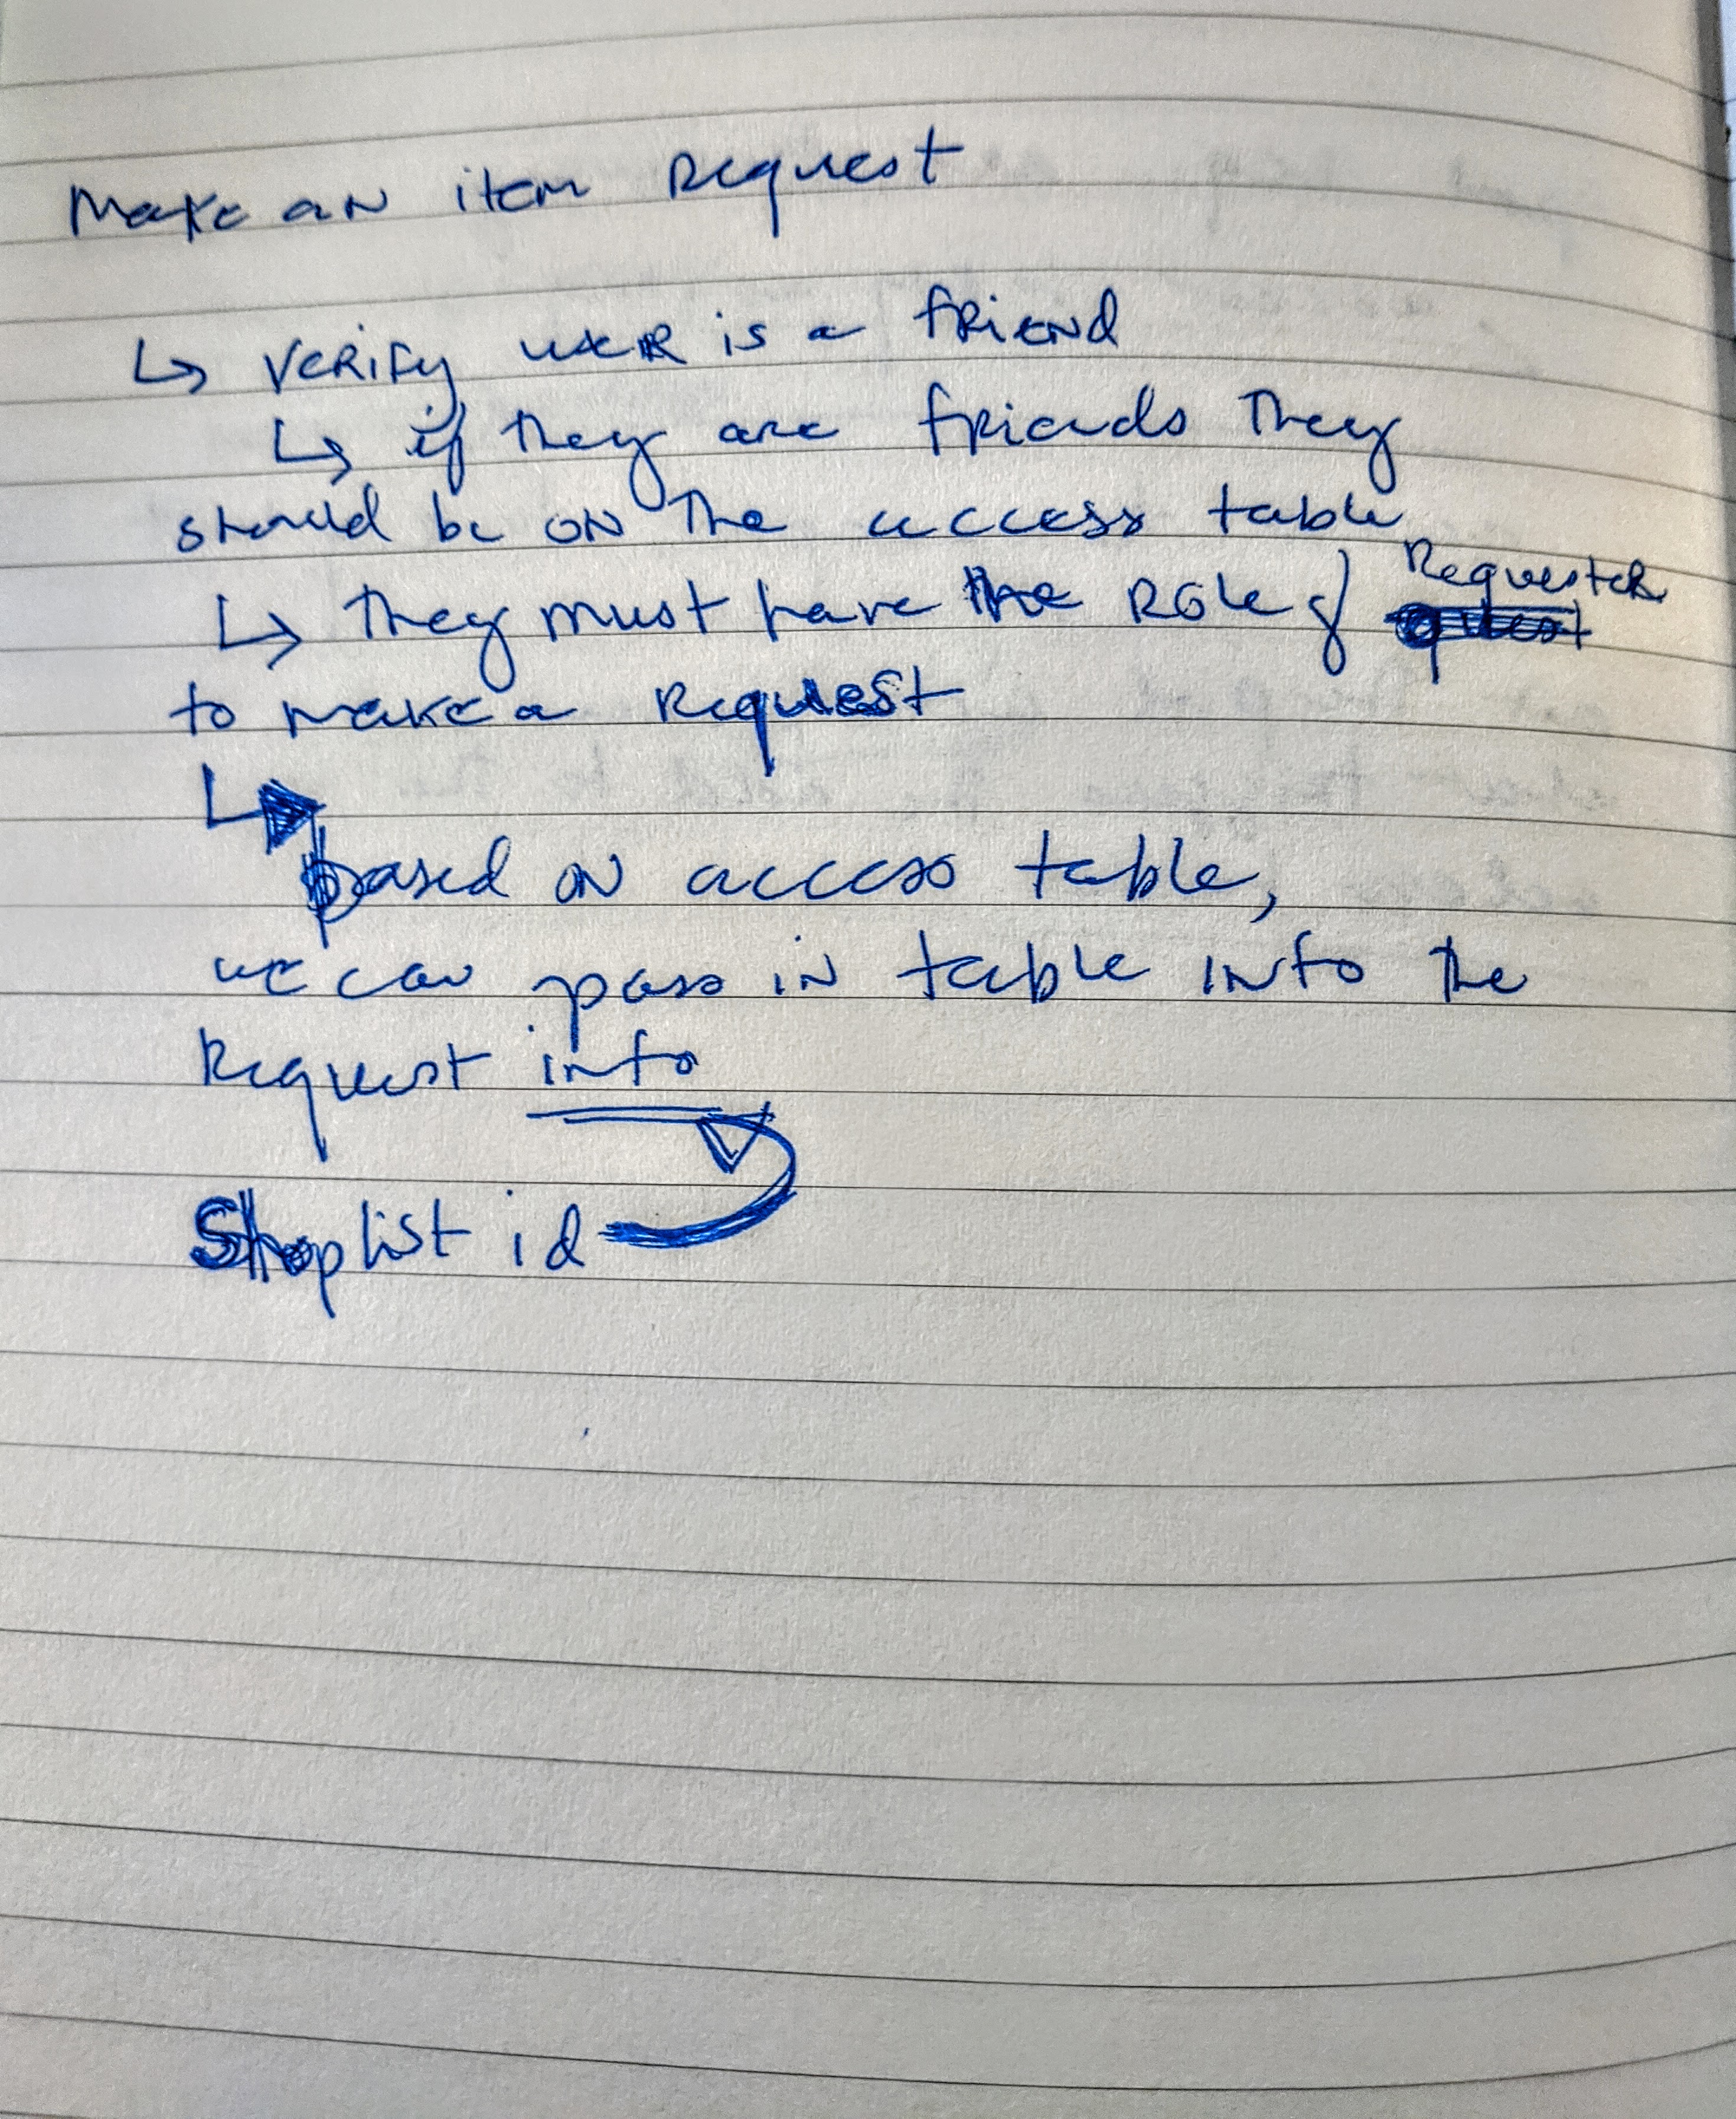 Make an item Request
↳ Verify user is a friend
↳ if they are friends they
should be on the access table
↳ they must have the Role of Requester
to make a Request
↳ based on access table,
we can pass in table into the
Request info
Shoplist id